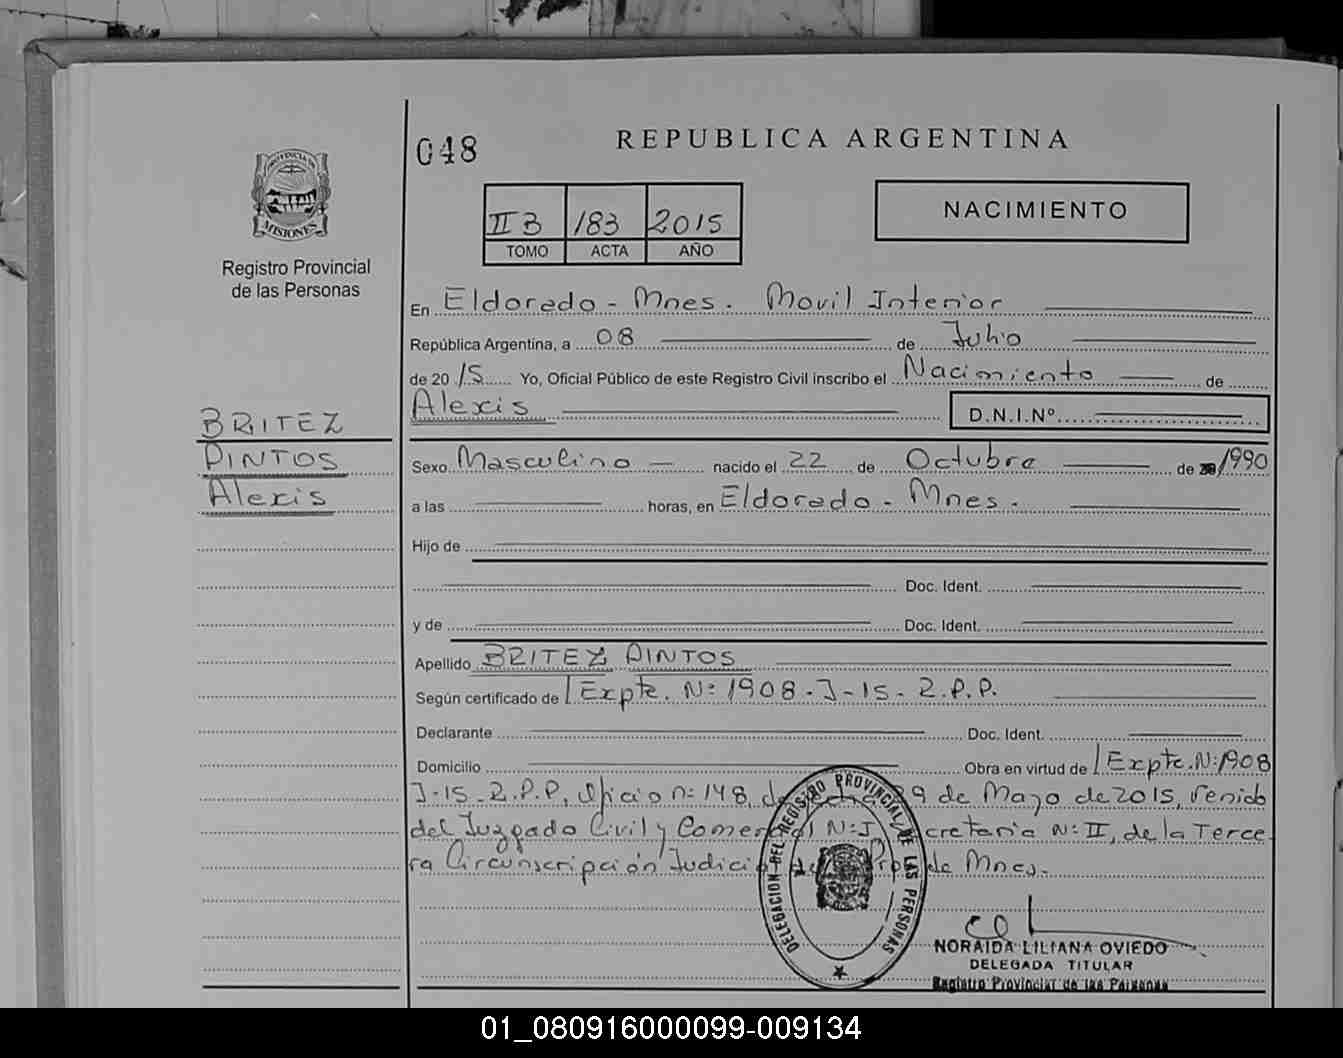 048
REPUBLICA ARGENTINA
PROVINCIA DE
MISIONES
Registro Provincial
de las Personas
II B 183 2015
TOMO ACTA AÑO
NACIMIENTO
En Eldorado - Mnes. Movil Interior
República Argentina, a 08 de Julio
de 2015 Yo, Oficial Público de este Registro Civil inscribo el Nacimiento de
Alexis D.N.I.Nº
BRITEZ
PINTOS
Alexis
Sexo Masculino nacido el 22 de Octubre de 1990
a las horas, en Eldorado - Mnes.
Hijo de
Doc. Ident.
y de Doc. Ident.
Apellido BRITEZ PINTOS
Según certificado de Expte. Nº 1908-J-15-2.P.P.
Declarante Doc. Ident.
Domicilio Obra en virtud de Expte. Nº 1908
J-15-2.P.P, Oficio nº 148, de fecha 29 de Mayo de 2015, venido
del Juzgado Civil y Comercial Nº I, Secretaria Nº II, de la Terce-
ra Circunscripción Judicial de la Prov. de Mnes.
DELEGACION DEL REGISTRO PROVINCIAL DE LAS PERSONAS
NORAIDA LILIANA OVIEDO
DELEGADA TITULAR
Registro Provincial de las Personas
01_080916000099-009134